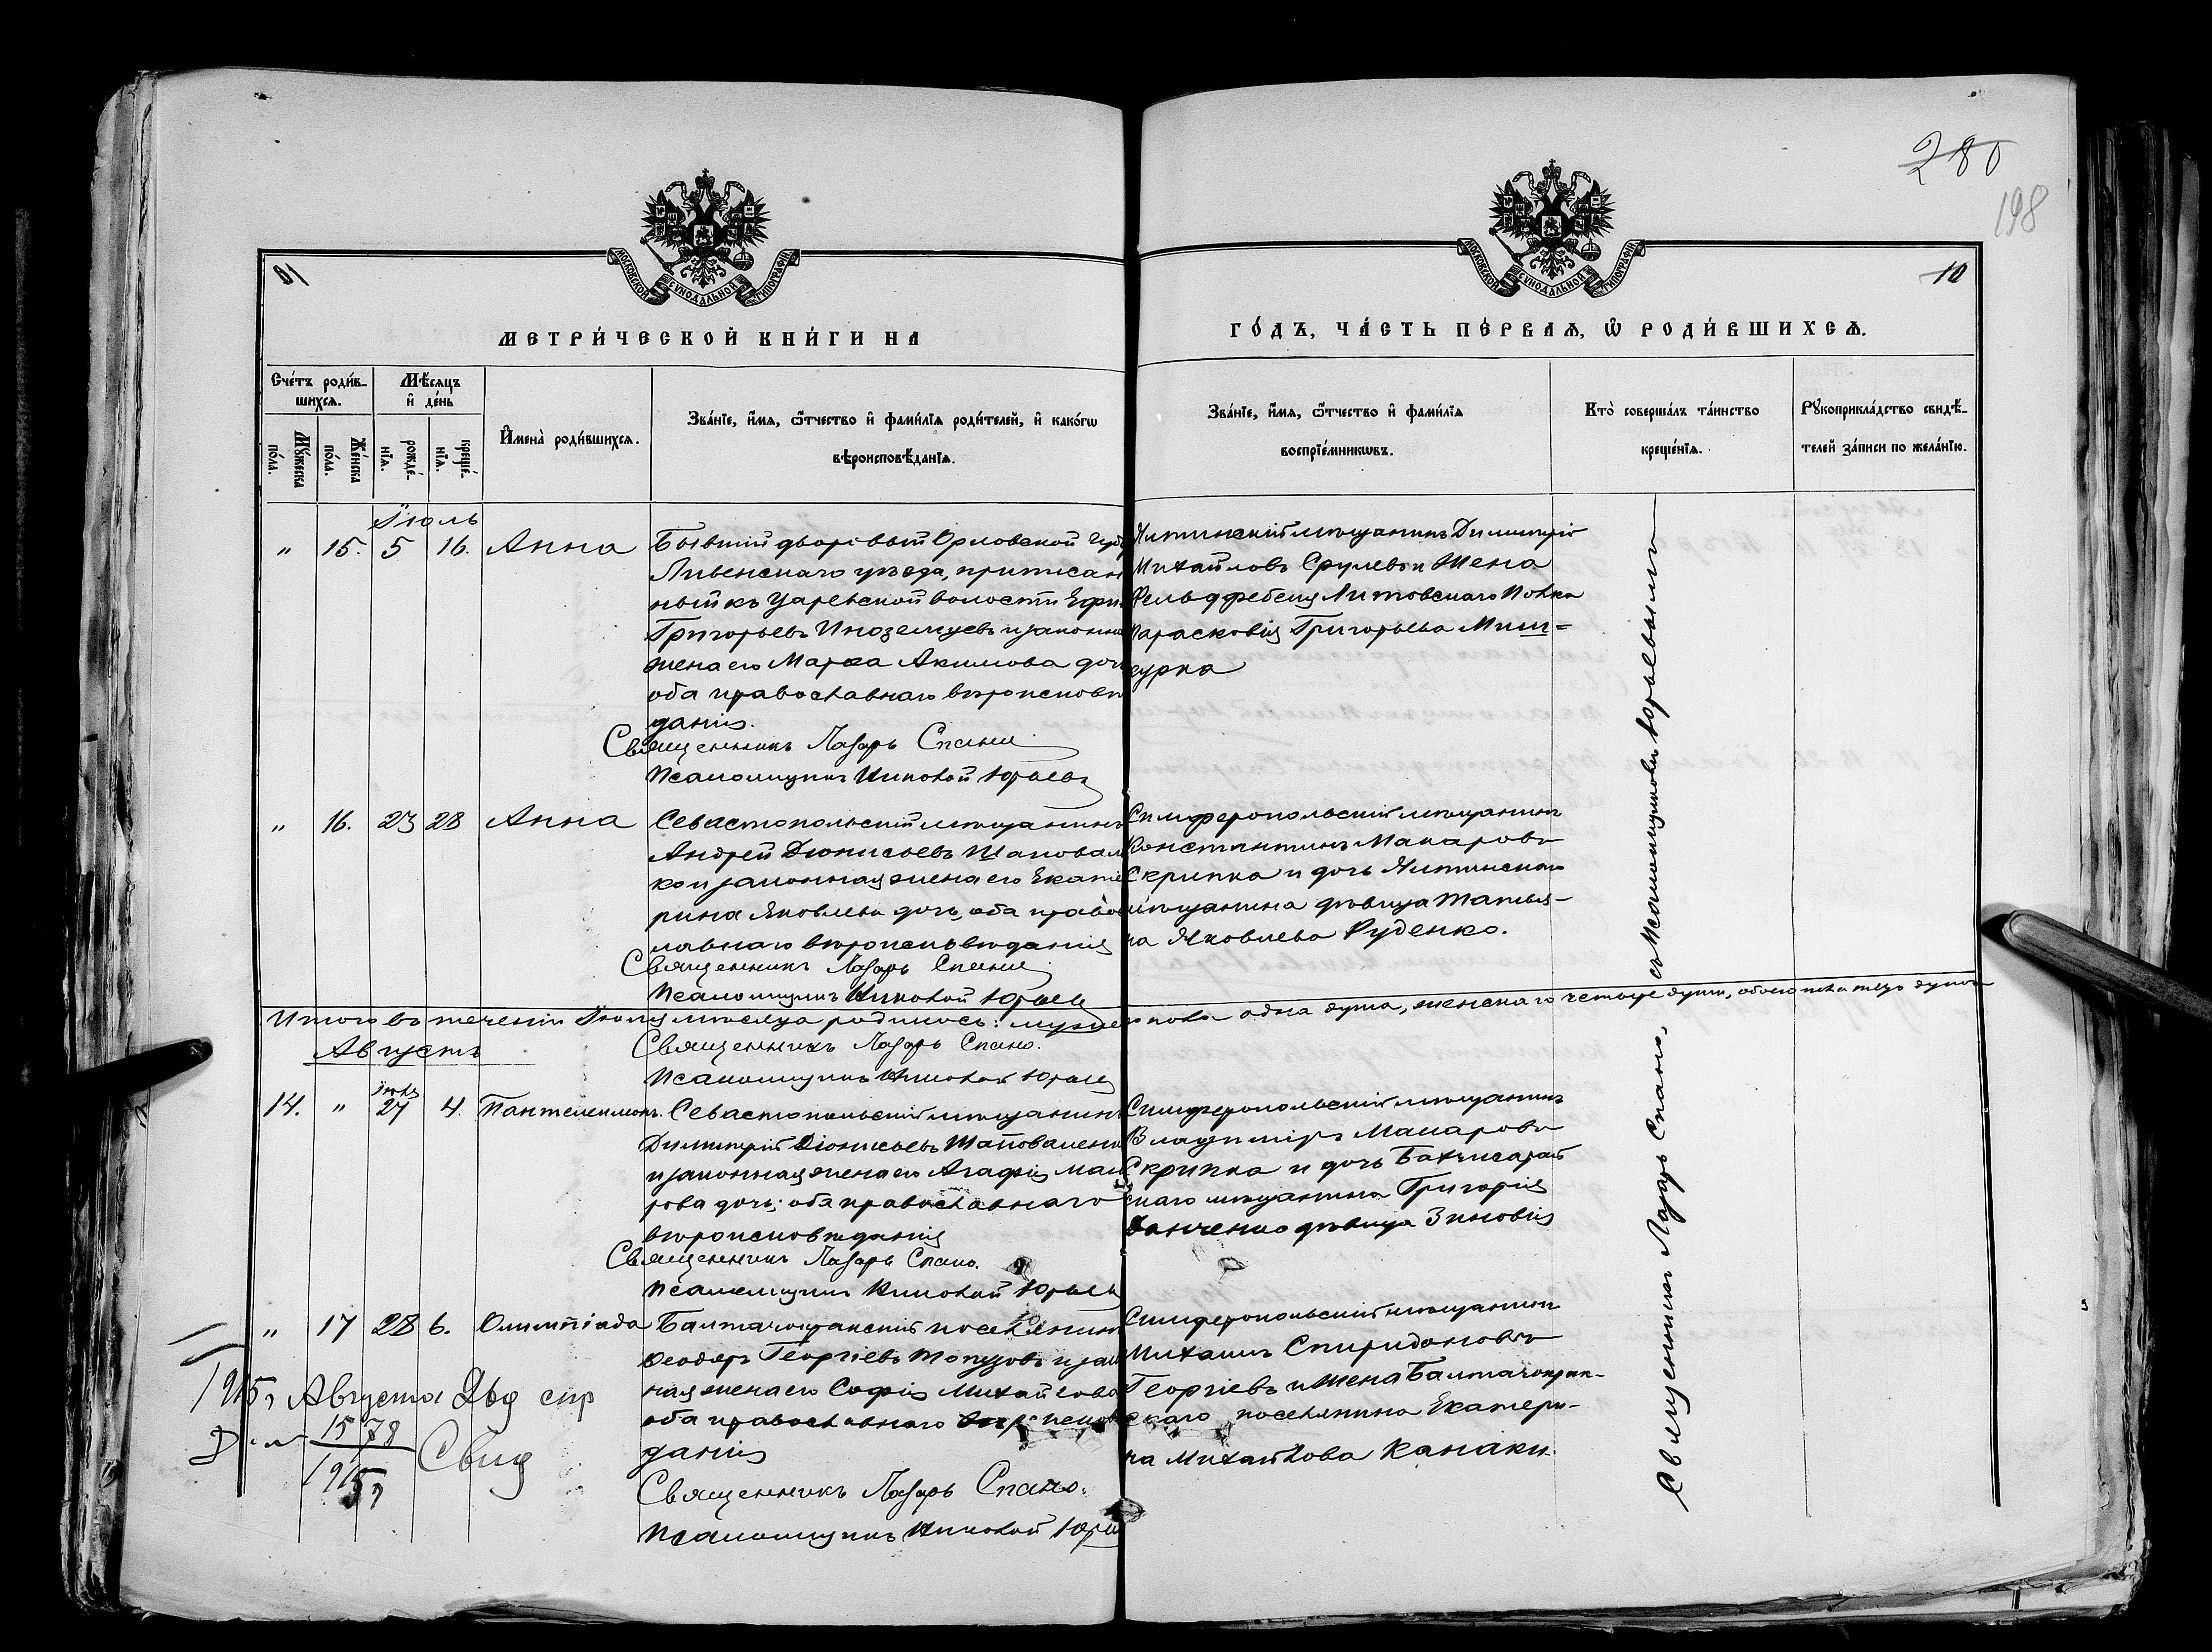 280
198
10
МОСКОВСКОЙ СѴНОДАЛЬНОЙ ТИПОГРАФІИ
МОСКОВСКОЙ СѴНОДАЛЬНОЙ ТИПОГРАФІИ
МЕТРИ́ЧЕСКОЙ КНИ́ГИ НА
ГО́ДЪ, ЧА́СТЬ ПЕ́РВАЯ, Ѿ РОДИ́ВШИХСѦ.
Сче́тъ роди́в-
шихсѧ.
Мꙋжеска
по́ла.
Же́нска
по́ла.
Мѣ́сѧцъ
и҆ де́нь
рожде́-
нїѧ.
креще́-
нїѧ.
И҆мена̀ роди́вшихсѧ.
Зва́нїе, и҆́мѧ, ѻ҆́тчество и҆ фами́лїѧ роди́телей, и҆ како́гѡ
вѣроисповѣ́данїѧ.
Зва́нїе, и҆́мѧ, ѻ҆́тчество и҆ фами́лїѧ
воспрїе́мникѡвъ.
Кто̀ соверша́лъ та́инство
креще́нїѧ.
Рꙋкоприкла́дство свидѣ́-
телей за́писи по жела́нїю.
Іюль
" 15. 5 16. Анна
Бывшій дворовый Орловской Губ
Ливенскаго уѣзда, приписан
ный къ Царевской волости Ефи
Григорьевъ Иноземцевъ и законна
жена его Марѳа Акимова доч
оба православнаго вѣроисповѣ
данія.
Священникъ Лазарь Спано
Псаломщикъ Николай Юрьевъ
Ялтинскій мѣщанинъ Димитрій
Михайловъ и Жена
Фельдфебеля Литовскаго Полка
Парасковія Григорьева Миш-
сурка
" 16. 23 28 Анна
Севастопольскій мѣщанинъ
Андрей Діонисьевъ Шаповал
ко и законная жена его Екате
рина Яковлева дочь, оба правос
лавнаго вѣроисповѣданія
Священникъ Лазарь Спано
Псаломщикъ Николай Юрьевъ
Симферопольскій мѣщанинъ
Константинъ Макаровъ
Скрипка и дочь Ялтинскаго
мѣщанина дѣвица Татья-
на Яковлева Руденко.
Итого въ теченіи Іюля мѣсяца родилось: мужескаго пола одна душа, женскаго четыре души, обоего пола пять душъ
Августъ
Священникъ Лазарь Спано.
Псаломщикъ Николай Юрьевъ
14. " Іюля 27 4. Пантелеимонъ.
Севастопольскій мѣщанинъ
Димитрій Діонисьевъ Шаповаленко
и законная жена его Агафія Мака
рова дочь; оба православнаго
вѣроисповѣданія
Священникъ Лазарь Спано.
Псаломщикъ Николай Юрьевъ
Симферопольскій мѣщанинъ
Владиміръ Макаровъ
Скрипка и дочь Бахчисарай
скаго мѣщанина Григорія
Ванченко дѣвица Зиновія
" 17 28 6. Олимпіада
Балтачокракскій поселянинъ
Ѳеодоръ Георгіевъ Топузовъ и зак
ная жена его Софія Михайлова
оба православнаго вѣроиспов
данія
Священникъ Лазарь Спано.
Псаломщикъ Николай Юрьевъ
Симферопольскій мѣщанинъ
Михаилъ Спиридоновъ
Георгіевъ и Жена Балтачокрак-
скаго поселянина Екатери-
на Михайлова Канаки.
1915 Августа
1578
1915
Свид
Священникъ Лазарь Спано, съ Псаломщикомъ Юрьевымъ